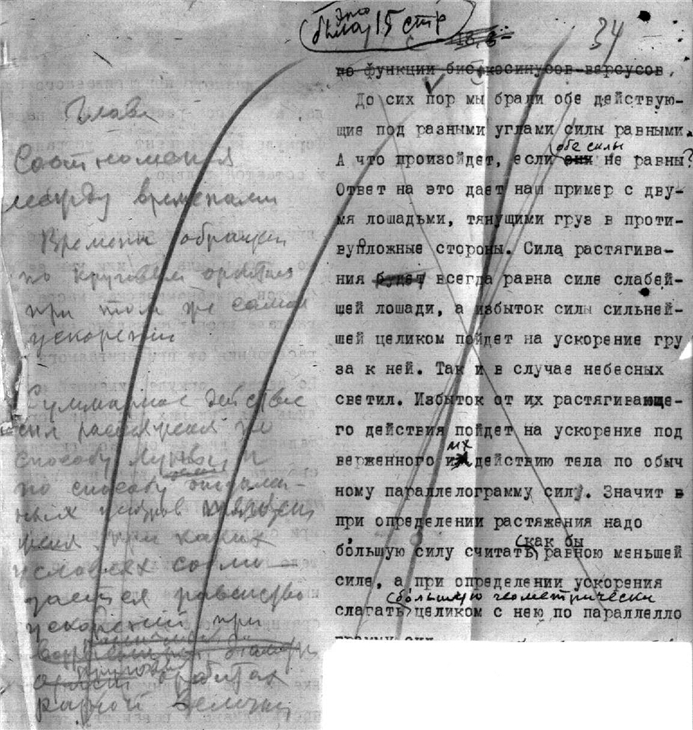 это
было 15 стр
34
по функции биокосинусов-версусов.
До сих пор мы брали обе действую-
щие под разными углами силы равными.
обе силы
А что произойдет, если они не равны?
Ответ на это дает наш пример с дву-
мя лошадьми, тянущими груз в проти-
вуположные стороны. Сила растягива-
ния будет всегда равна силе слабей-
шей лошади, а избыток силы сильней-
шей целиком пойдет на ускорение гру
за к ней. Так и в случае небесных
светил. Избыток от их растягивающе-
го действия пойдет на ускорение под
их
верженного их действию тела по обыч
ному параллелограмму сил. Значит в
при определении растяжения надо
как бы
большую силу считать равною меньшей
силе, а при определении ускорения
большую геометрически
слагать целиком с нею по параллело
грамму сил
Глава
Соотношения
между временами
Времена обращения
по круговым орбитам
при том же самом
ускорении
Суммарное действие
сил
по способу
и
по способу
при каких
условиях
дается равенство
ускорений при
орбитах
разной величины